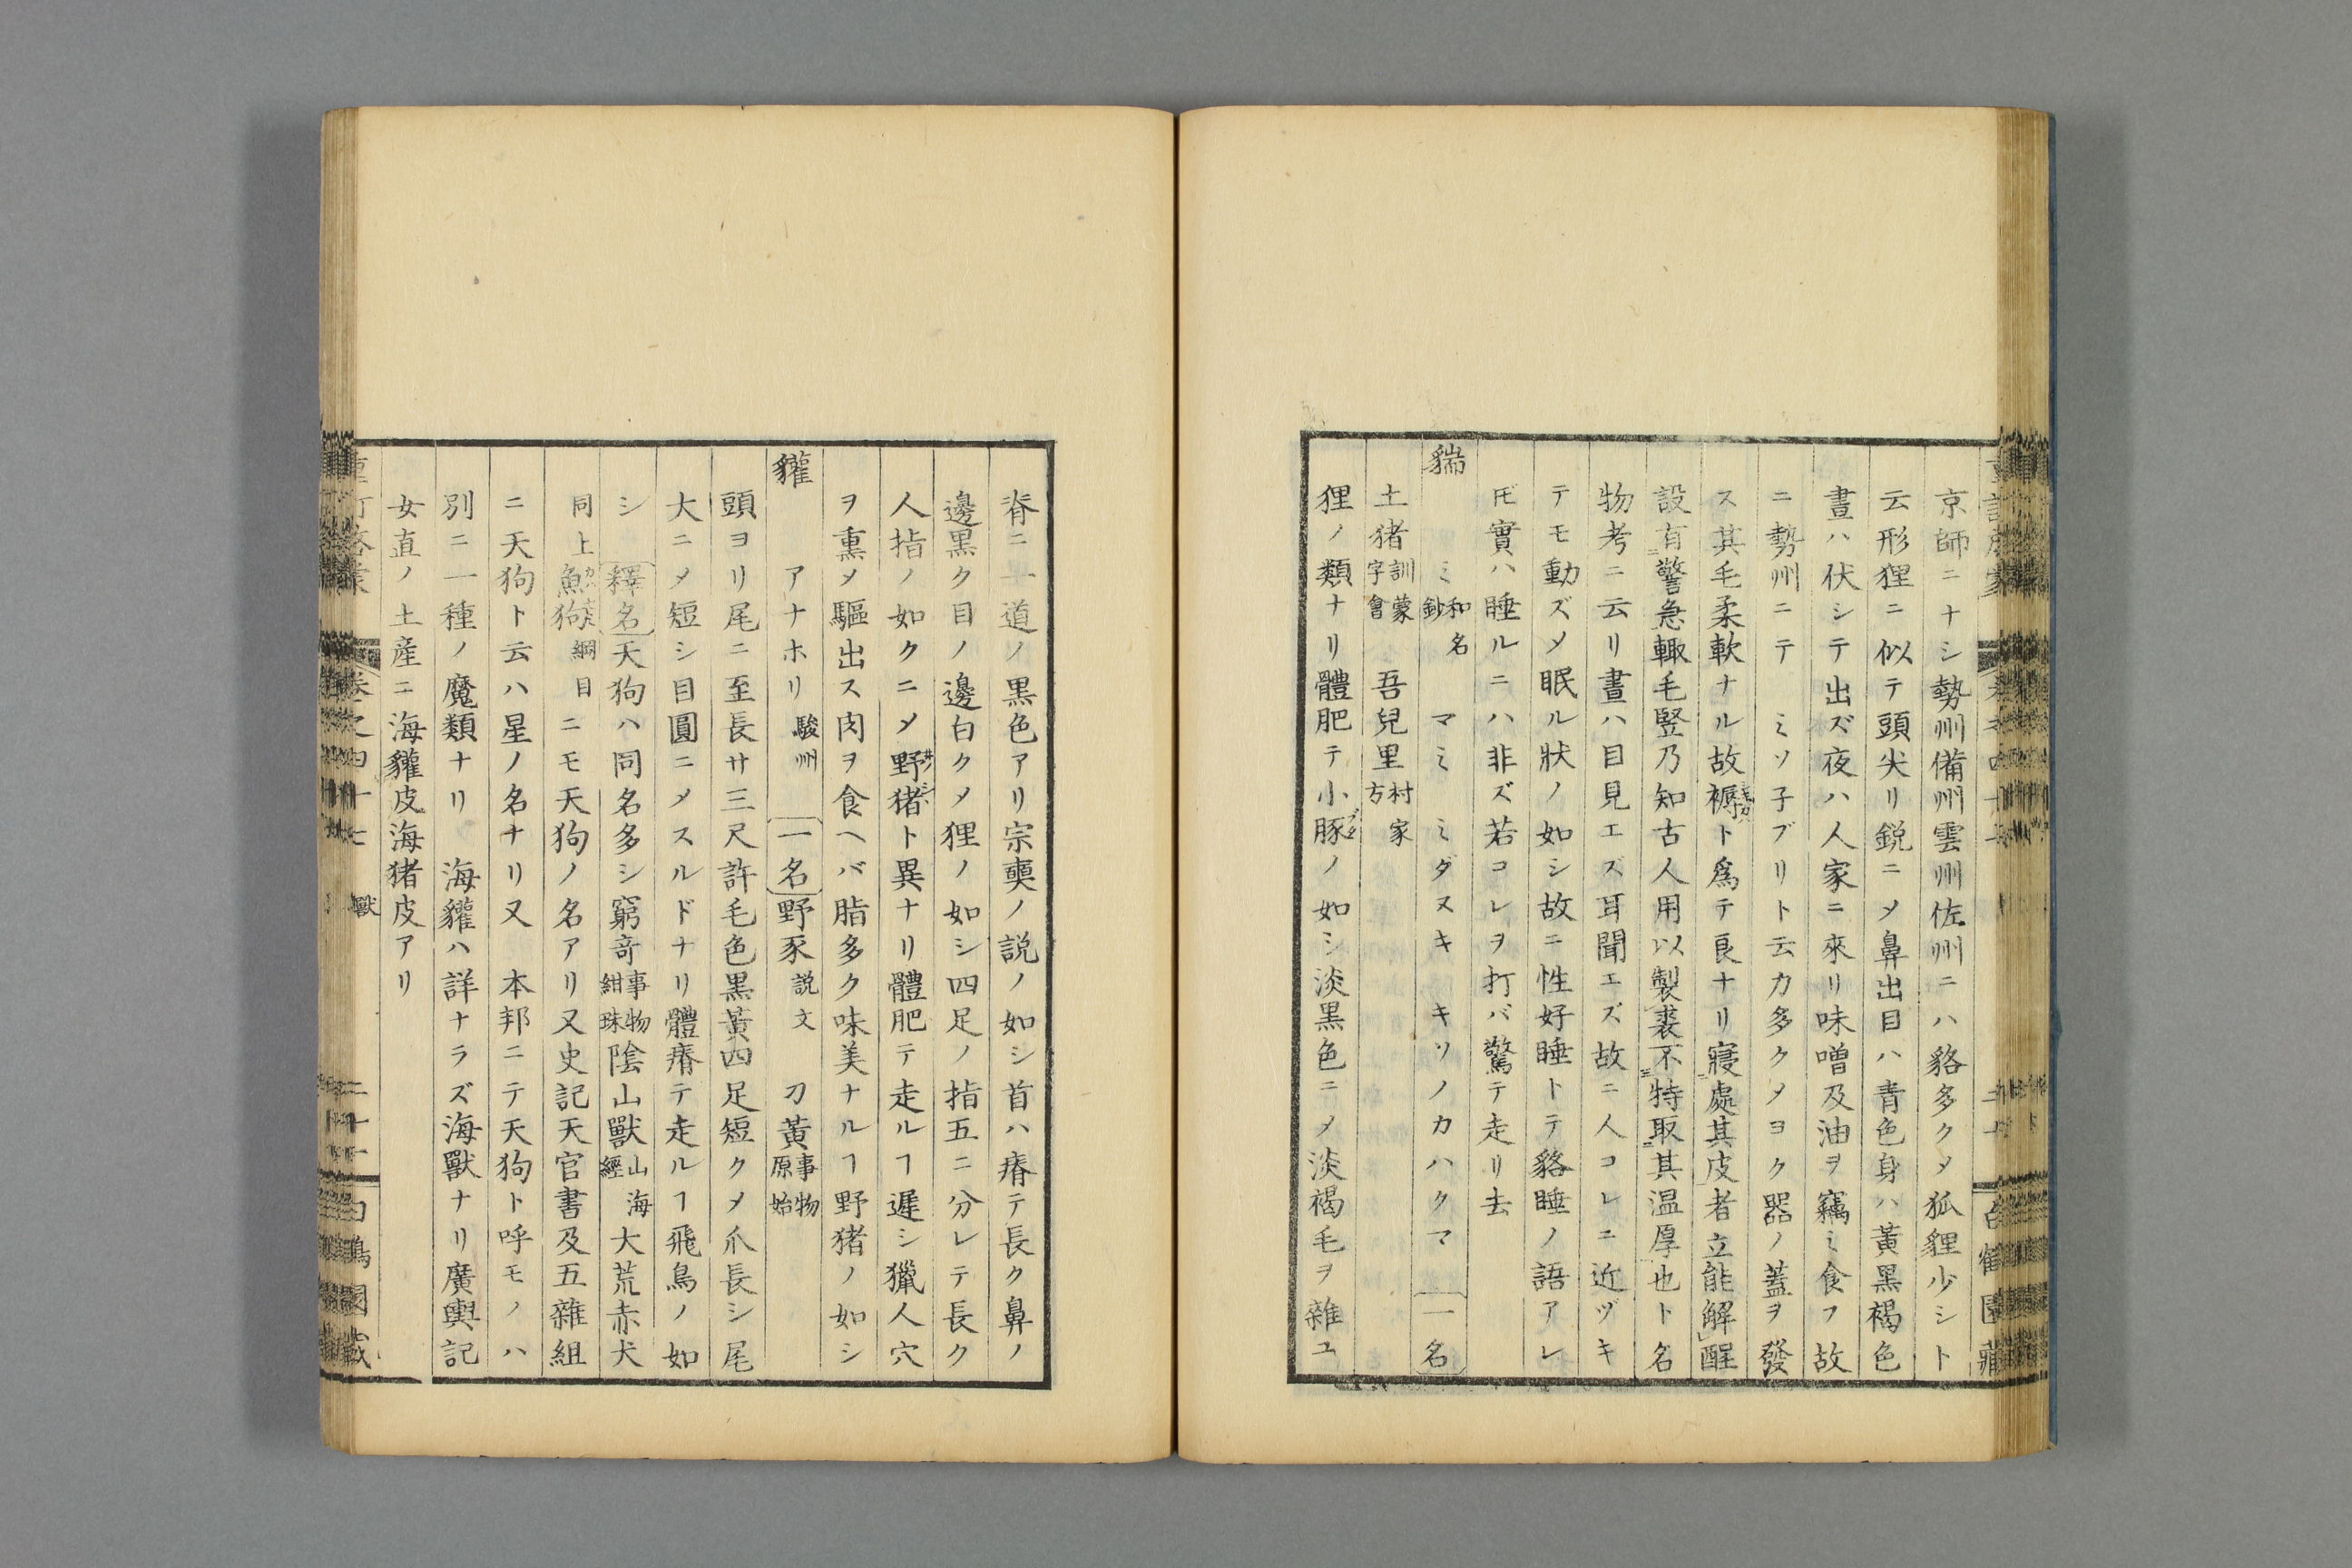 京師ニナシ勢州備州雲州佐州ニハ貉多クメ狐貍少シト
云形狸ニ似テ頭尖リ鋭ニメ鼻出目ハ青色身ハ黃黒褐色
晝ハ伏シテ出ズ夜ハ人家ニ來リ味噌及油ヲ竊ミ食フ故
ニ勢州ニテ ミソ子ブリト云力多クメヨク器ノ蓋ヲ發
ス其毛柔軟ナル故褥ト爲テ良ナリ寢處其皮者立能解醒
設有警急輙毛竪乃知古人用以製裘不特取其温厚也ト名
物考ニ云リ晝ハ目見エズ耳聞エズ故ニ人コレニ近ヅキ
テモ動ズメ眠ル狀ノ如シ故ニ性好睡トテ貉睡ノ語アレ
𪜈實ハ睡ルニハ非ズ若コレヲ打バ驚テ走リ去
貒 ミ 和名鈔 マミ ミダヌキ キソノカハクマ 一名
土猪 訓蒙字會 吾兒里 村家方
狸ノ類ナリ體肥テ小豚ノ如シ淡黒色ニメ淡褐毛ヲ雜ユ
脊ニ一道ノ黒色アリ宗奭ノ説ノ如シ首ハ瘠テ長ク鼻ノ
邊黒ク目ノ邊白クメ狸ノ如シ四足ノ指五ニ分レテ長ク
人指ノ如クニメ野猪ト異ナリ體肥テ走ルヿ遲シ獵人穴
ヲ熏メ驅出ス肉ヲ食ヘバ脂多ク味美ナルヿ野猪ノ如シ
貛 アナホリ 駿州 一名 野豕 説文 刀黃 事物原始
頭ヨリ尾ニ至長サ三尺許毛色黒黃四足短クメ爪長シ尾
大ニメ短シ目圓ニメスルドナリ體瘠テ走ルヿ飛鳥ノ如
シ 釋名 天狗ハ同名多シ窮奇 事物紺珠 陰山獸 山海經 大荒赤犬
同上 魚狗 綱目 ニモ天狗ノ名アリ又史記天官書及五雜組
ニ天狗ト云ハ星ノ名ナリ又 本邦ニテ天狗ト呼モノハ
別ニ一種ノ魔類ナリ 海貛ハ詳ナラズ海獸ナリ廣輿記
女直ノ土産ニ海貛皮海猪皮アリ